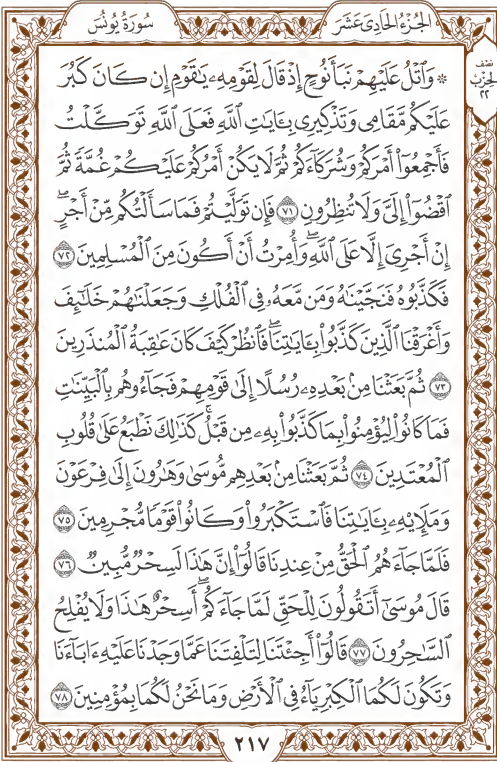 الجُزْءُ الحَادِي عَشَرَ
سُورَةُ يُونُسَ
نصف
الحزب
٢٢
۞ وَٱتۡلُ عَلَيۡهِمۡ نَبَأَ نُوحٍ إِذۡ قَالَ لِقَوۡمِهِۦ يَٰقَوۡمِ إِن كَانَ كَبُرَ
عَلَيۡكُم مَّقَامِي وَتَذۡكِيرِي بِـَٔايَٰتِ ٱللَّهِ فَعَلَى ٱللَّهِ تَوَكَّلۡتُ
فَأَجۡمِعُوٓاْ أَمۡرَكُمۡ وَشُرَكَآءَكُمۡ ثُمَّ لَا يَكُنۡ أَمۡرُكُمۡ عَلَيۡكُمۡ غُمَّةٗ ثُمَّ
ٱقۡضُوٓاْ إِلَيَّ وَلَا تُنظِرُونِ ٧١ فَإِن تَوَلَّيۡتُمۡ فَمَا سَأَلۡتُكُم مِّنۡ أَجۡرٍۖ
إِنۡ أَجۡرِيَ إِلَّا عَلَى ٱللَّهِۖ وَأُمِرۡتُ أَنۡ أَكُونَ مِنَ ٱلۡمُسۡلِمِينَ ٧٢
فَكَذَّبُوهُ فَنَجَّيۡنَٰهُ وَمَن مَّعَهُۥ فِي ٱلۡفُلۡكِ وَجَعَلۡنَٰهُمۡ خَلَٰٓئِفَ
وَأَغۡرَقۡنَا ٱلَّذِينَ كَذَّبُواْ بِـَٔايَٰتِنَاۖ فَٱنظُرۡ كَيۡفَ كَانَ عَٰقِبَةُ ٱلۡمُنذَرِينَ
٧٣ ثُمَّ بَعَثۡنَا مِنۢ بَعۡدِهِۦ رُسُلًا إِلَىٰ قَوۡمِهِمۡ فَجَآءُوهُم بِٱلۡبَيِّنَٰتِ
فَمَا كَانُواْ لِيُؤۡمِنُواْ بِمَا كَذَّبُواْ بِهِۦ مِن قَبۡلُۚ كَذَٰلِكَ نَطۡبَعُ عَلَىٰ قُلُوبِ
ٱلۡمُعۡتَدِينَ ٧٤ ثُمَّ بَعَثۡنَا مِنۢ بَعۡدِهِم مُّوسَىٰ وَهَٰرُونَ إِلَىٰ فِرۡعَوۡنَ
وَمَلَإِيْهِۦ بِـَٔايَٰتِنَا فَٱسۡتَكۡبَرُواْ وَكَانُواْ قَوۡمٗا مُّجۡرِمِينَ ٧٥
فَلَمَّا جَآءَهُمُ ٱلۡحَقُّ مِنۡ عِندِنَا قَالُوٓاْ إِنَّ هَٰذَا لَسِحۡرٞ مُّبِينٞ ٧٦
قَالَ مُوسَىٰٓ أَتَقُولُونَ لِلۡحَقِّ لَمَّا جَآءَكُمۡۖ أَسِحۡرٌ هَٰذَا وَلَا يُفۡلِحُ
ٱلسَّٰحِرُونَ ٧٧ قَالُوٓاْ أَجِئۡتَنَا لِتَلۡفِتَنَا عَمَّا وَجَدۡنَا عَلَيۡهِ ءَابَآءَنَا
وَتَكُونَ لَكُمَا ٱلۡكِبۡرِيَآءُ فِي ٱلۡأَرۡضِ وَمَا نَحۡنُ لَكُمَا بِمُؤۡمِنِينَ ٧٨
٢١٧